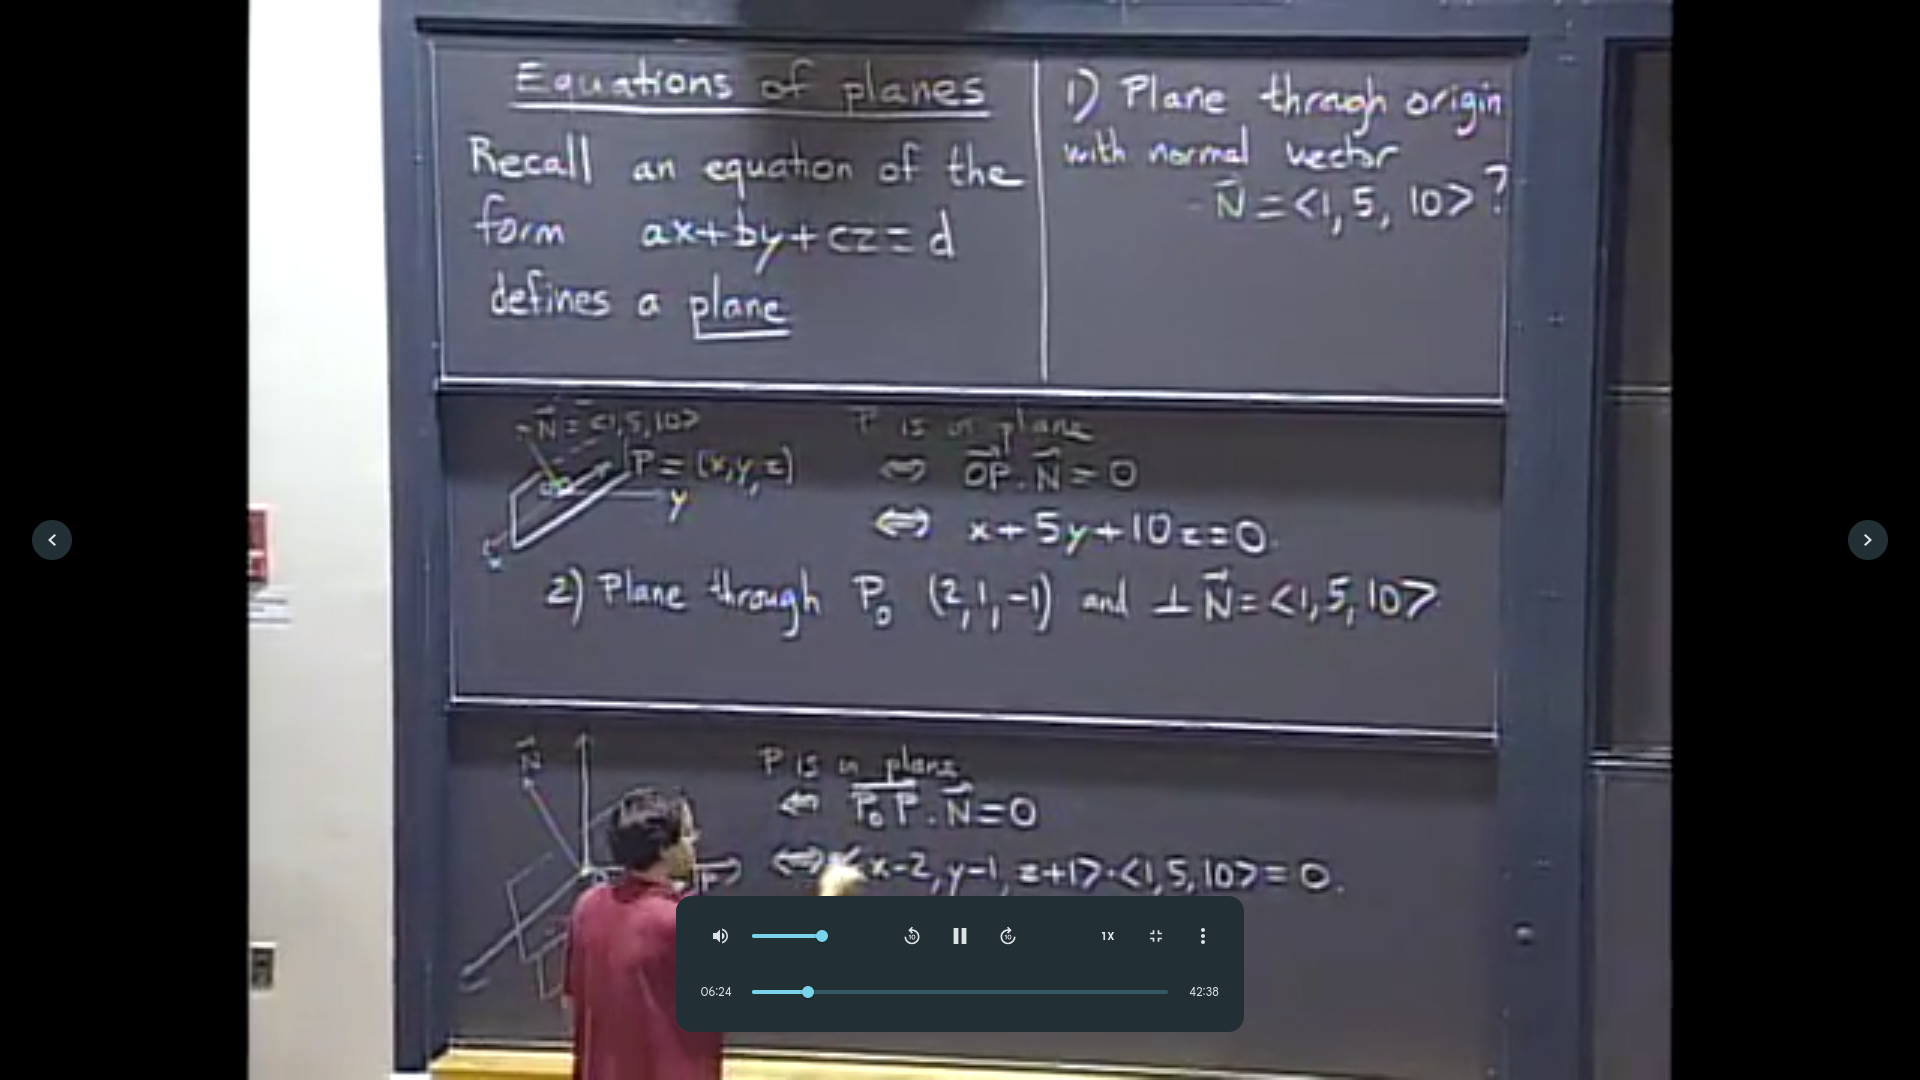 Equations of planes
Recall an equation of the
form ax+by+cz=d
defines a plane
1) Plane through origin
with normal vector
N⃗ =<1,5, 10>?
N⃗ = <1,5,10>
P = (x,y,z)
y
x
P is in plane
⇔ OP⃗ . N⃗ = 0
⇔ x+5y+10z=0.
2) Plane through P₀ (2,1,-1) and ⊥ N⃗ = <1,5,10>
N⃗
P is in plane
⇔ P₀P⃗ . N⃗ =0
⇔ <x-2, y-1, z+1>.<1,5,10> = 0.
10
10
1X
06:24
42:38